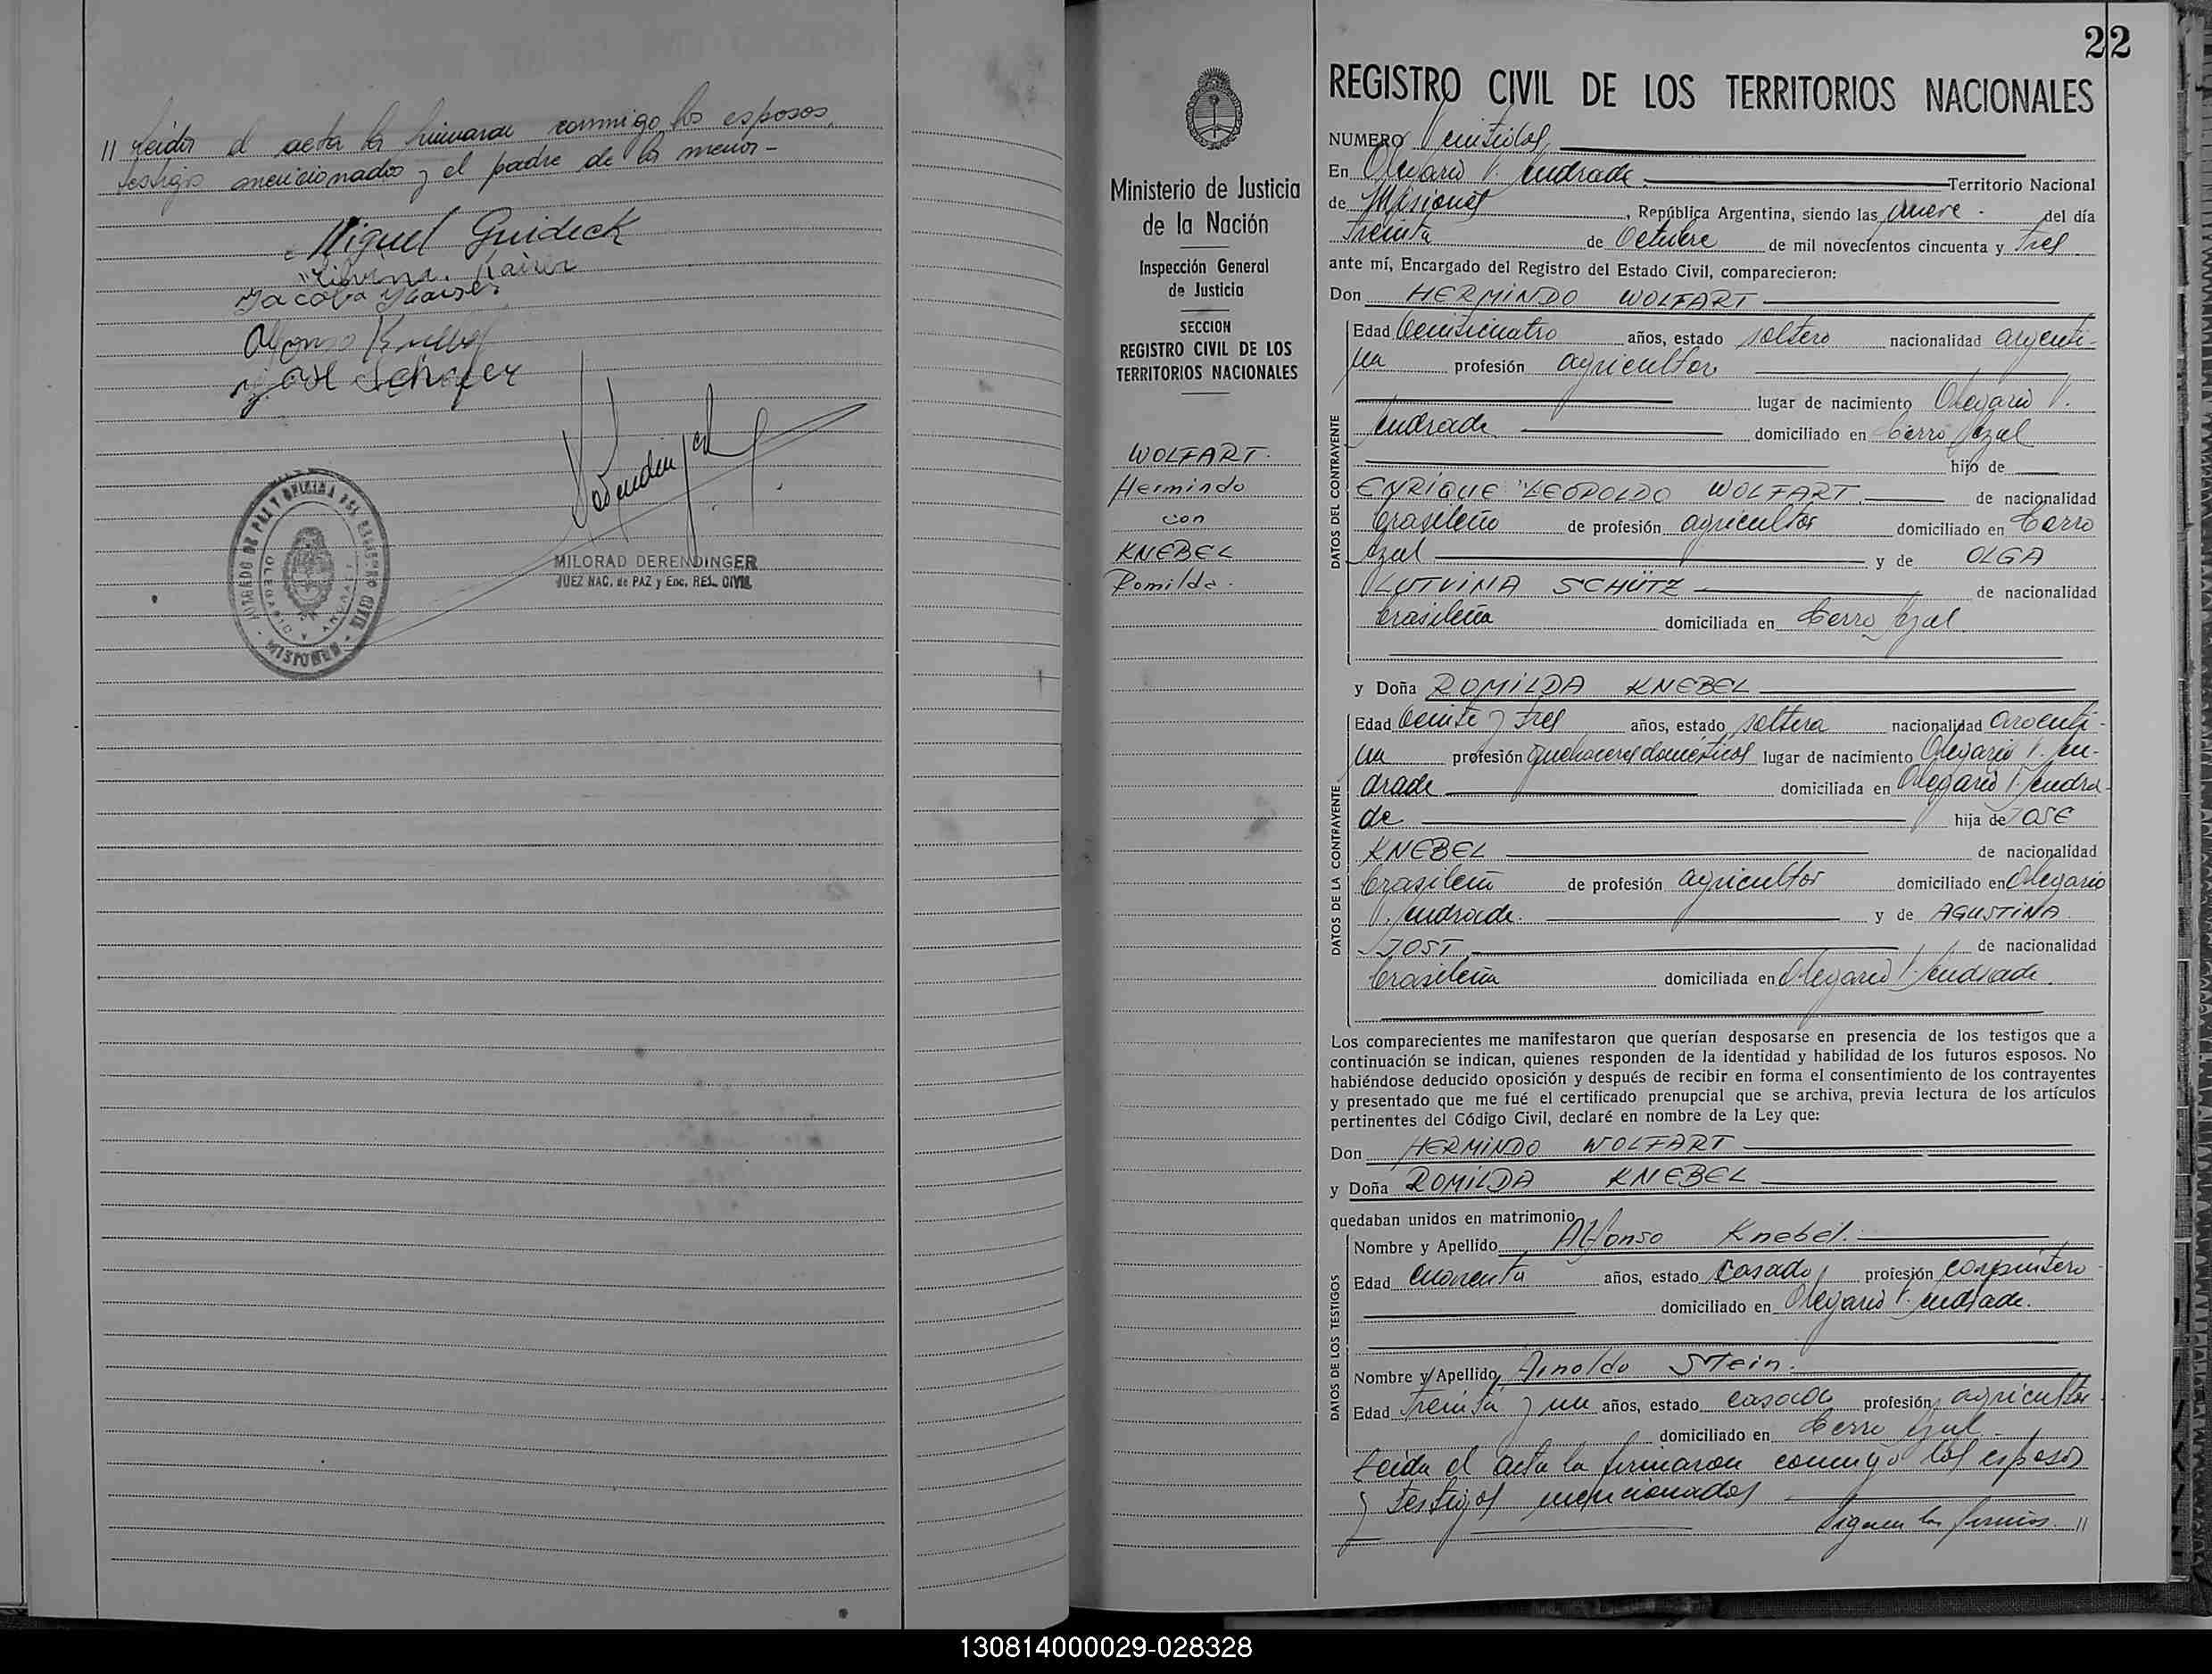 // Leída el acta la firmaron conmigo los esposos,
testigos mencionados y el padre de la menor-
Miguel Guideck
Jacobo Kaiser
Alfonso Knebel
José Schäfer
Derendinger
JUZGADO DE PAZ Y OFICINA DEL REGISTRO CIVIL
OLEGARIO V. ANDRADE
- MISIONES -
MILORAD DERENDINGER
JUEZ NAC. de PAZ y Enc. REG. CIVIL
22
Ministerio de Justicia
de la Nación
Inspección General
de Justicia
SECCION
REGISTRO CIVIL DE LOS
TERRITORIOS NACIONALES
WOLFART.
Hermindo
con
KNEBEL
Romilda.
REGISTRO CIVIL DE LOS TERRITORIOS NACIONALES
NUMERO Veintidos
En Olegario V. Andrade. Territorio Nacional
de Misiones, República Argentina, siendo las nueve - del día
treinta de Octubre de mil novecientos cincuenta y tres
ante mí, Encargado del Registro del Estado Civil, comparecieron:
Don HERMINDO WOLFART
DATOS DEL CONTRAYENTE
Edad Veinticuatro años, estado soltero nacionalidad argenti-
na profesión agricultor
lugar de nacimiento Olegario V.
Andrade domiciliado en Cerro Azul
hijo de
ENRIQUE LEOPOLDO WOLFART. de nacionalidad
brasileño de profesión agricultor domiciliado en Cerro
Azul y de OLGA
LUTVINA SCHÜTZ de nacionalidad
brasileña domiciliada en Cerro Azul
y Doña ROMILDA KNEBEL
DATOS DE LA CONTRAYENTE
Edad Veinte y tres años, estado soltera nacionalidad argenti-
na profesión quehaceres domésticos lugar de nacimiento Olegario V. An-
drade domiciliada en Olegario V. Andra-
de hija de JOSE
KNEBEL de nacionalidad
brasileño de profesión agricultor domiciliado en Olegario
V. Andrade. y de AGUSTINA
JOST de nacionalidad
brasileña domiciliada en Olegario V. Andrade.
Los comparecientes me manifestaron que querían desposarse en presencia de los testigos que a
continuación se indican, quienes responden de la identidad y habilidad de los futuros esposos. No
habiéndose deducido oposición y después de recibir en forma el consentimiento de los contrayentes
y presentado que me fué el certificado prenupcial que se archiva, previa lectura de los artículos
pertinentes del Código Civil, declaré en nombre de la Ley que:
Don HERMINDO WOLFART
y Doña ROMILDA KNEBEL
quedaban unidos en matrimonio
DATOS DE LOS TESTIGOS
Nombre y Apellido Alfonso Knebel.
Edad cuarenta años, estado casado profesión carpintero
domiciliado en Olegario V. Andrade.
Nombre y Apellido Arnoldo Stein.
Edad treinta y un años, estado casado profesión agricultor
domiciliado en Cerro Azul.
Leída el acta la firmaron conmigo los esposos
y testigos mencionados
Siguen las firmas. //
130814000029-028328